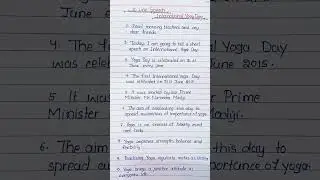 10 Line Speech
International Yoga Day
1. Good morning teachers and my dear friends.
2. Today, I am going to tell a short speech on International Yoga Day
3. Yoga Day is celebrated on 21 st June every year
4. The first International Yoga Day was celebrated on 21 June 2015.
5. It was started by our Prime Minister Mr. Narendra Modiji.
6. The aim of celebrating this day to spread awareness of importance of yoga.
7. Yoga is an exercise of
mind and body
8. Yoga improves strength, balance and flexibility
9. Practising Yoga regularly makes us
10. Yoga brings a positive attitude in everyone's life
4. The
June
was
5. It w
Minister
6. The aim
spread au
Yoga Day
June 2015.
Prime
Modiji.
this day to
importance of yoga.